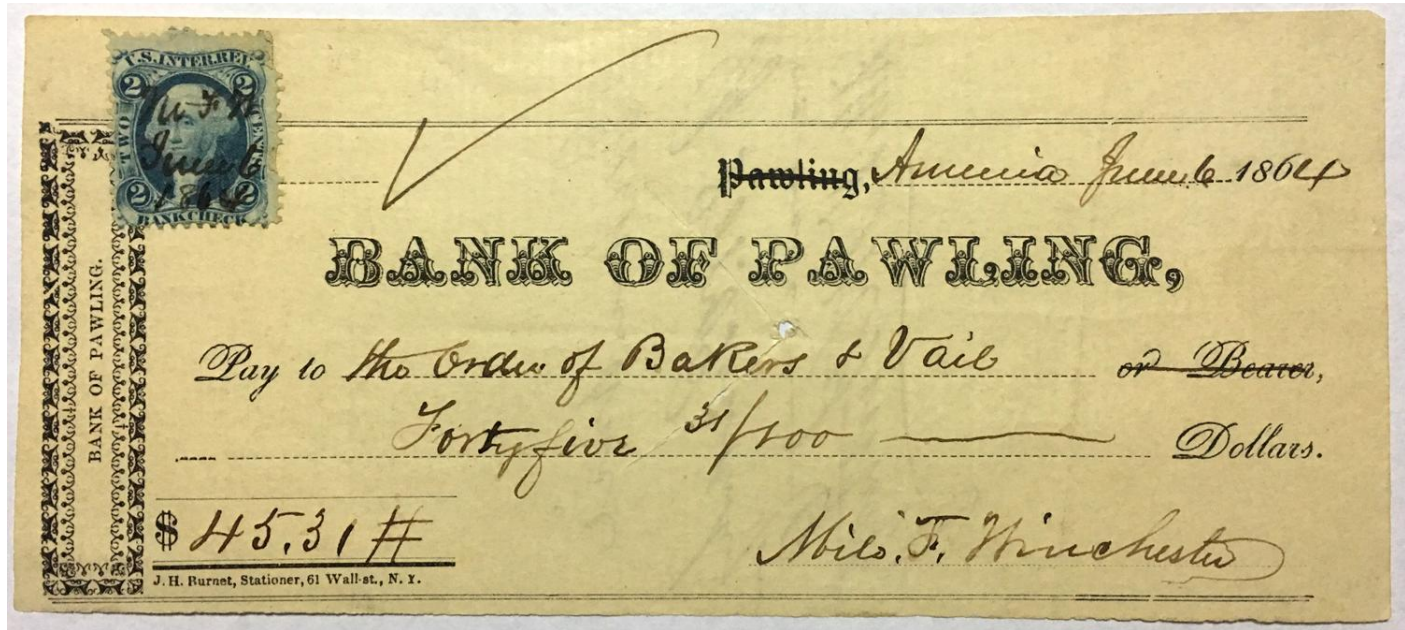 U.S. INTER. REV.
2 2
TWO CENTS
M. F. W.
June 6
1864
2 2
BANK CHECK
BANK OF PAWLING.
Pawling, Amenia June 6 1864
BANK OF PAWLING,
Pay to the Order of Bakers & Vail or Bearer,
Forty five 31/100 Dollars.
$ 45.31 #
Milo. F. Winchester
J. H. Burnet, Stationer, 61 Wall-st., N. Y.